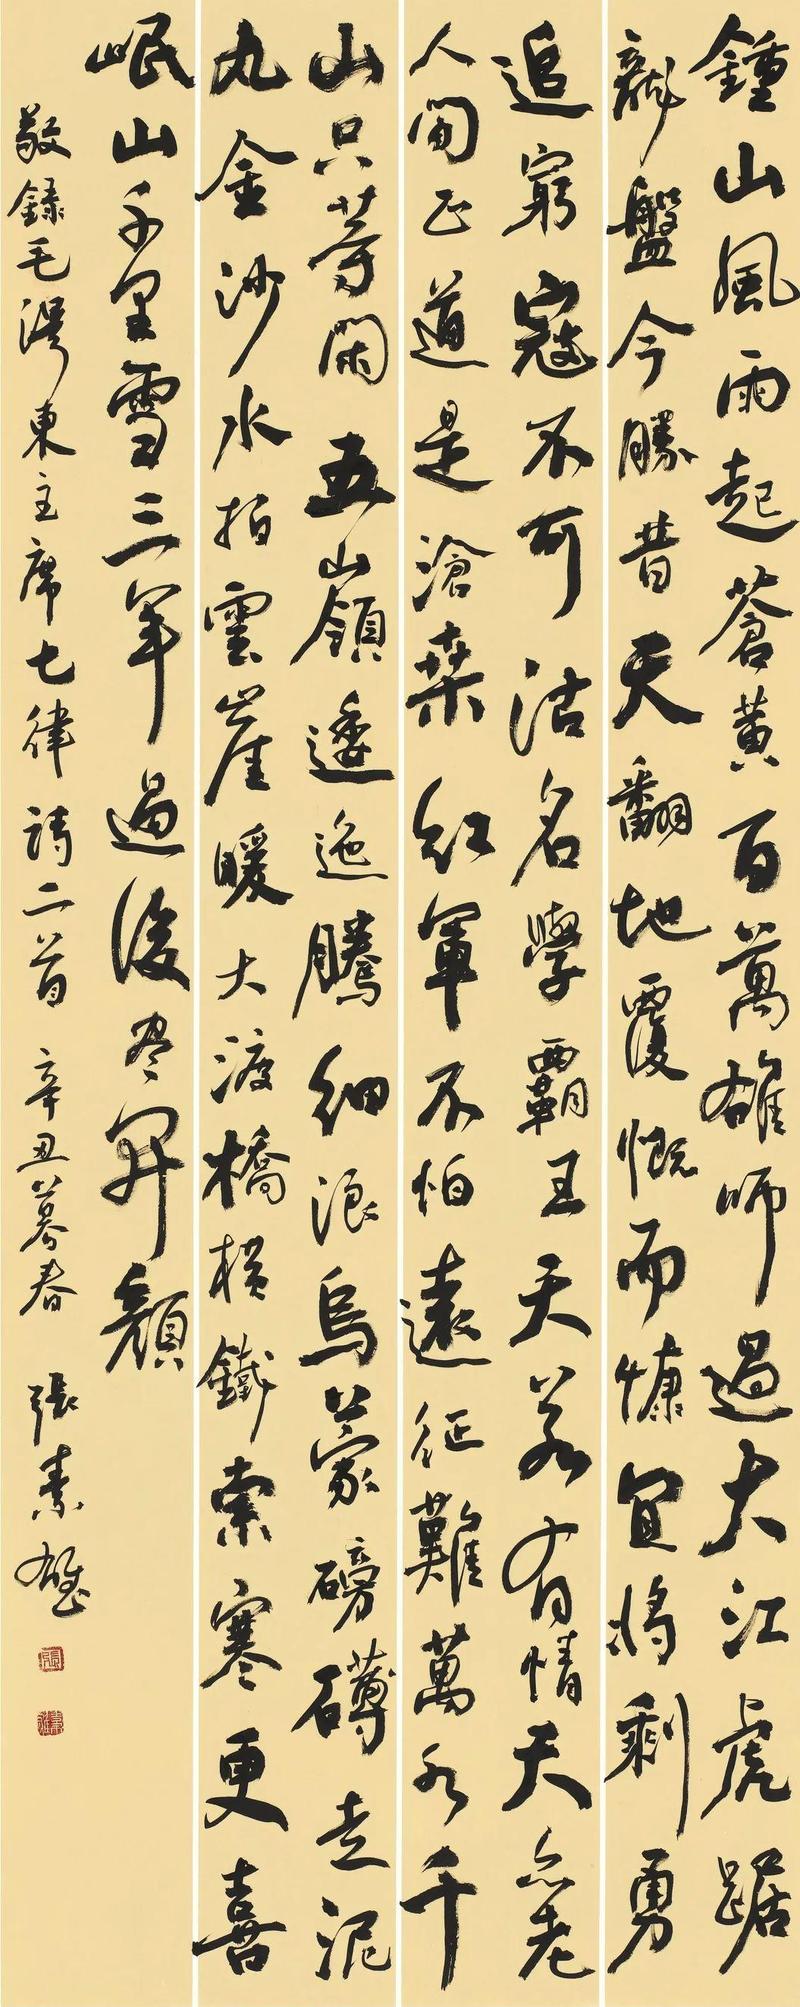 鍾山風雨起蒼黄百萬雄師過大江虎踞
龍盤今勝昔天翻地覆慨而慷宜將剩勇
追窮寇不可沽名學霸王天若有情天亦老
人間正道是滄桑紅軍不怕遠征難萬水千
山只等閑五嶺逶迤騰細浪烏蒙磅礴走泥
丸金沙水拍雲崖暖大渡橋横鐵索寒更喜
岷山千里雪三軍過後尽开顔
敬録毛澤東主席七律詩二首 辛丑暮春 張素雄